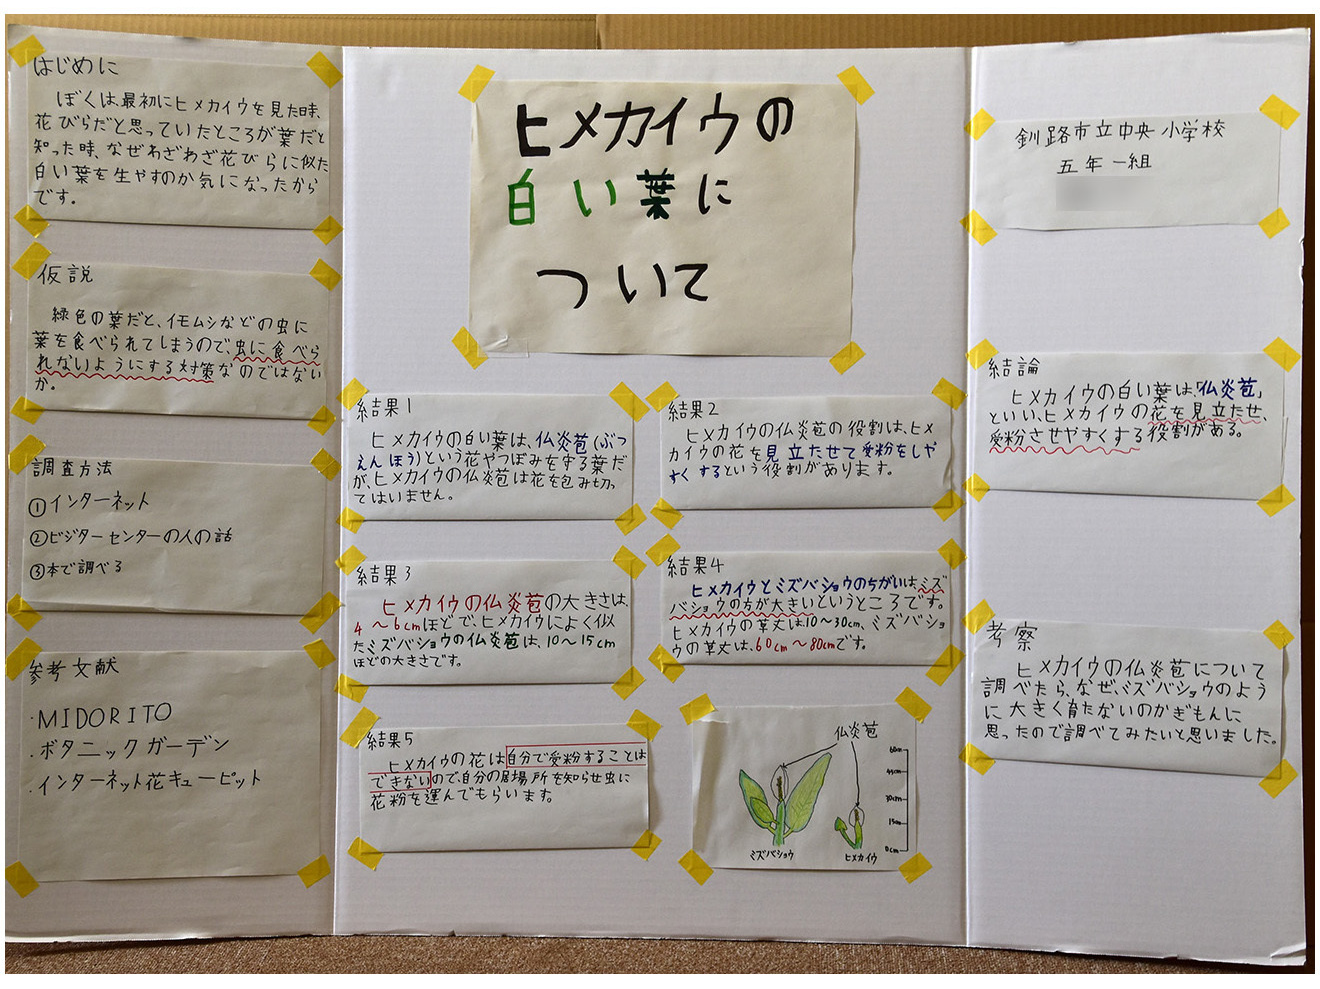 はじめに
ぼくは、最初にヒメカイウを見た時、
花びらだと思っていたところが葉だと
知った時、なぜわざわざ花びらに似た
白い葉を生やすのか気になったから
です。
仮説
緑色の葉だと、イモムシなどの虫に
葉を食べられてしまうので、虫に食べら
れないようにする対策なのではない
か。
調査方法
①インターネット
②ビジターセンターの人の話
③本で調べる
参考文献
・MIDORITO
・ボタニックガーデン
・インターネット花キューピット
ヒメカイウの
白い葉に
ついて
結果1
ヒメカイウの白い葉は、仏炎苞(ぶつ
えんほう)という花やつぼみをする葉だ
が、ヒメカイウの仏炎苞は花を包み切っ
てはいません。
結果2
ヒメカイウの仏炎苞の役割は、ヒメ
カイウの花を見立たせて受粉をしや
すくするという役割があります。
結果3
ヒメカイウの仏炎苞の大きさは、
4〜6cmほどで、ヒメカイウによく似
たミズバショウの仏炎苞は、10〜15cm
ほどの大きさです。
結果4
ヒメカイウとミズバショウのちがいはミズ
バショウの方が大きいというところです。
ヒメカイウの草丈は10〜30cm、ミズバショ
ウの草丈は、60cm〜80cmです。
結果5
ヒメカイウの花は自分で受粉することは
できないので、自分の居場所を知らせ虫に
花粉を運んでもらいます。
仏炎苞
60cm
45cm
30cm
15cm
0cm
ミズバショウ
ヒメカイウ
釧路市立中央小学校
五年一組
結論
ヒメカイウの白い葉は、「仏炎苞」
といい、ヒメカイウの花を見立たせ、
受粉させやすくする役割がある。
考察
ヒメカイウの仏炎苞について
調べたら、なぜ、ミズバショウのよう
に大きく育たないのかぎもんに
思ったので調べてみたいと思いました。